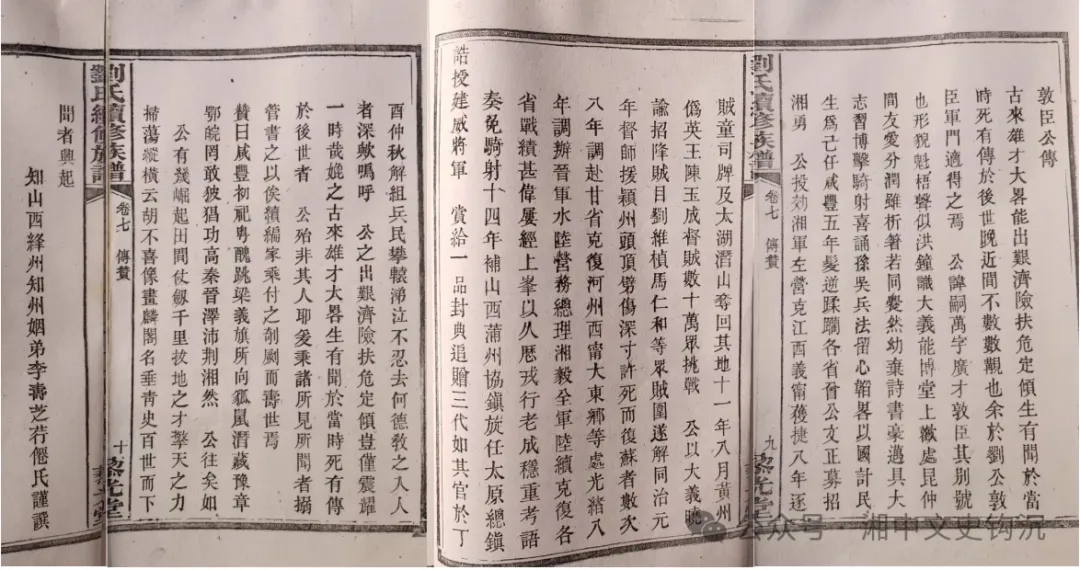 敦臣公傳
古來雄才大畧能出艱濟險扶危定傾生有聞於當
時死有傳於後世晚近間不數數觀也余於劉公敦
臣軍門適得之焉　公諱嗣萬字廣才敦臣其別號
也形貌魁梧聲似洪鐘識大義能博堂上歡處昆仲
間友愛分潤雖析箸若同爨然幼棄詩書豪邁具大
志習博擊騎射喜誦孫吳兵法留心韜畧以國計民
生爲己任咸豐五年髮逆蹂躪各省晉公文正募招
湘勇　公投効湘軍左營克江西義甯獲捷八年逐
劉氏續修族譜
卷七　傳贊
九
賊童司牌及太湖潛山奪回其地十一年八月黃州
僞英王陳玉成督賊數十萬眾挑戰　公以大義曉
諭招降賊目劉維楨馬仁和等眾賊圍遂解同治元
年督師援潁州頭頂劈傷深寸許死而復蘇者數次
八年調赴甘省克復河州西甯大東鄉等處光緒八
年調辦晉軍水陸營務總理湘毅全軍陸續克復各
省戰績甚偉屢經上峯以久歷戎行老成穩重考語
奏免騎射十四年補山西蒲州協鎮旋任太原總鎮
誥授建威將軍　賞給一品封典追贈三代如其官於丁
酉仲秋解組兵民攀轅涕泣不忍去何德敎之入人
者深歟嗚呼　公之出艱濟險扶危定傾豈僅震耀
一時哉媲之古來雄才大畧生有聞於當時死有傳
於後世者　公殆非其人聊爰秉諸所見所聞者搦
管書之以俟續編家乘付之剞劂而壽世焉
贊曰咸豐初祀粤醜跳梁義旗所向狐鼠潛藏豫章
鄂皖罔敢披猖功高秦晉澤沛荆湘然　公往矣如
公有幾崛起田間仗劔千里拔地之才擎天之力
掃蕩縱橫云胡不喜像畫麟閣名垂靑史百世而下
劉氏續修族譜
卷七　傳贊
十
聞者興起
知山西絳州知州姻弟李壽芝荇僊氏謹譔
公众号　湘中文史钩沉